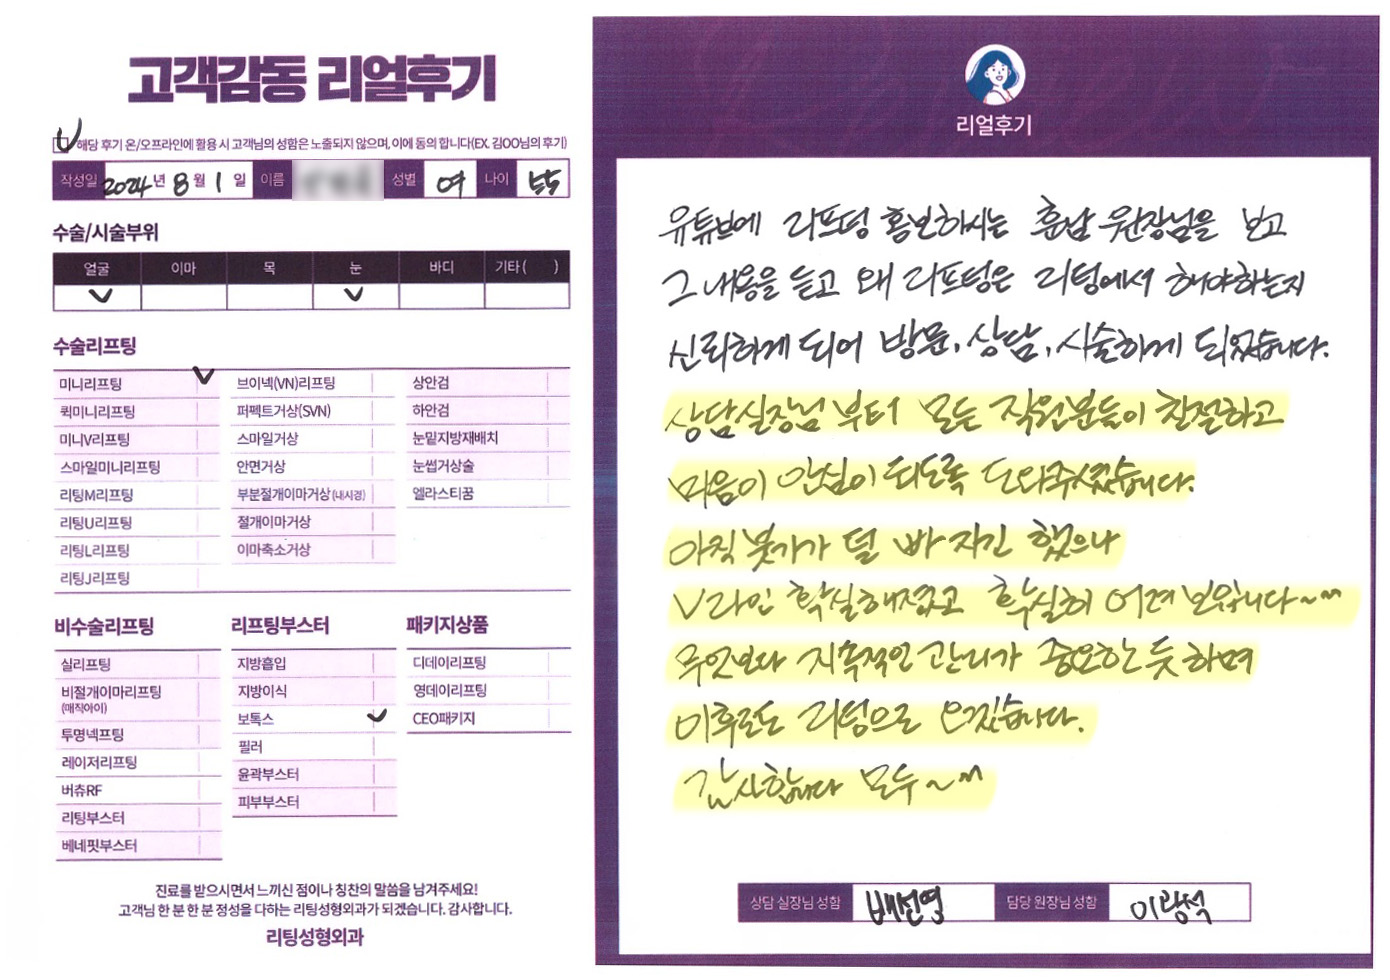 고객감동 리얼후기
해당 후기 온/오프라인에 활용 시 고객님의 성함은 노출되지 않으며, 이에 동의 합니다(EX. 김OO님의 후기)
작성일 2024년 8월 1일 이름 성별 여 나이 55
수술/시술부위
얼굴 이마 목 눈 바디 기타 ( )
수술리프팅
미니리프팅
퀵미니리프팅
미니V리프팅
스마일미니리프팅
리팅M리프팅
리팅U리프팅
리팅L리프팅
리팅J리프팅
브이넥(VN)리프팅
퍼펙트거상(SVN)
스마일거상
안면거상
부분절개이마거상 (내시경)
절개이마거상
이마축소거상
상안검
하안검
눈밑지방재배치
눈썹거상술
엘라스티꿈
비수술리프팅
실리프팅
비절개이마리프팅
(매직아이)
투명넥프팅
레이저리프팅
버츄RF
리팅부스터
베네핏부스터
리프팅부스터
지방흡입
지방이식
보톡스
필러
윤곽부스터
피부부스터
패키지상품
디데이리프팅
영데이리프팅
CEO패키지
진료를 받으시면서 느끼신 점이나 칭찬의 말씀을 남겨주세요!
고객님 한 분 한 분 정성을 다하는 리팅성형외과가 되겠습니다. 감사합니다.
리팅성형외과
리얼후기
유튜브에 리프팅 홍보하시는 훈남 원장님을 보고
그 내용을 듣고 왜 리프팅은 리팅에서 해야하는지
신뢰하게 되어 방문, 상담, 시술하게 되었습니다.
상담실장님 부터 모든 직원분들이 친절하고
마음이 안심이 되도록 도와주셨습니다.
아직 붓기가 덜 빠지긴 했으나
V라인 확실해졌고 확실히 어려 보입니다~^^
무엇보다 지속적인 관리가 중요한 듯 하며
이후로도 리팅으로 오겠습니다.
감사합니다 모두~^^
상담 실장님 성함 배선영 담당 원장님 성함 이광석